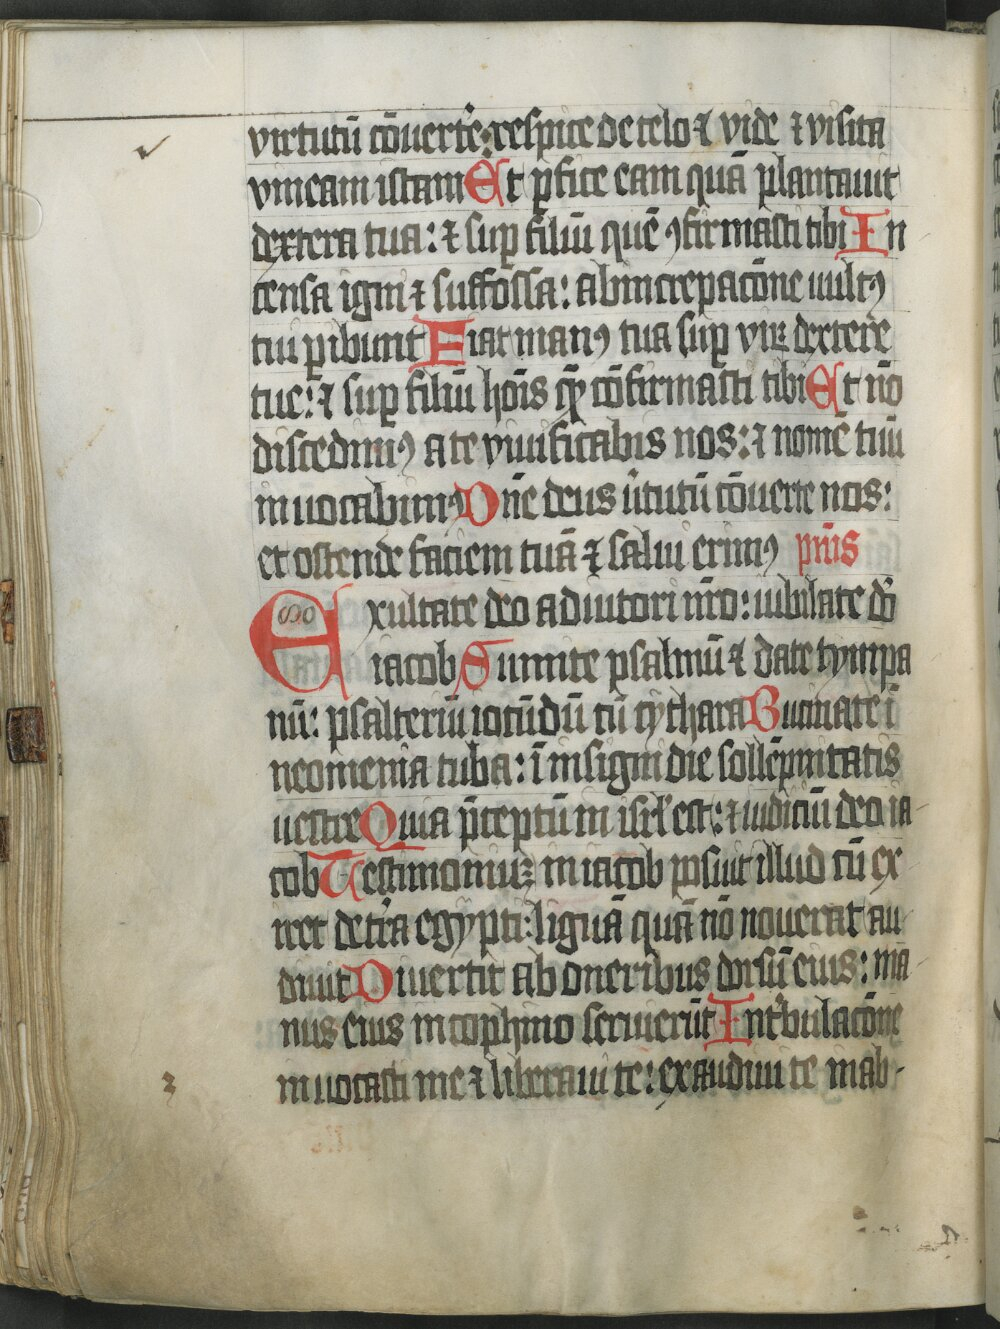 virtutū cōuerte: respice de celo ⁊ vide ⁊ visita
vineam istam Et ꝑfice eam quā plantauit
dextera tua: ⁊ suꝑ filiū quē ꝯfirmasti tibi In
censa igni ⁊ suffossa: ab increpacōne uultꝰ
tui ꝑibunt Fiat manꝰ tua suꝑ virꝫ dextere
tue: ⁊ suꝑ filiū hoīs qꝫ cōfirmasti tibi Et nō
discedimꝰ a te viuificabis nos: ⁊ nomē tuū
inuocabimꝰ Dn̄e deus ūtutū cōuerte nos:
et ostende faciem tuā ⁊ salui erimꝰ pm̄s
Exultate deo adiutori nr̄o: iubilate dō
iacob Sumite psalmū ⁊ date tympa
nū: psalteriū iocūdū cū cythara Bucinate ī
neomenia tuba: ī insigni die sollēpnitatis
uestre Quia p̄ceptū in isrl̄ est: ⁊ iudiciū deo ia
cob Testimoniuꝫ in iacob posuit illud cū ex
iret de tr̄a egypti: liguā quā nō nouerat au
diuit Diuertit ab oneribus dorsū eius: ma
nus eius in cophino seruierūt In tͥbulacōne
inuocasti me ⁊ liberaui te: exaudiui te in ab-